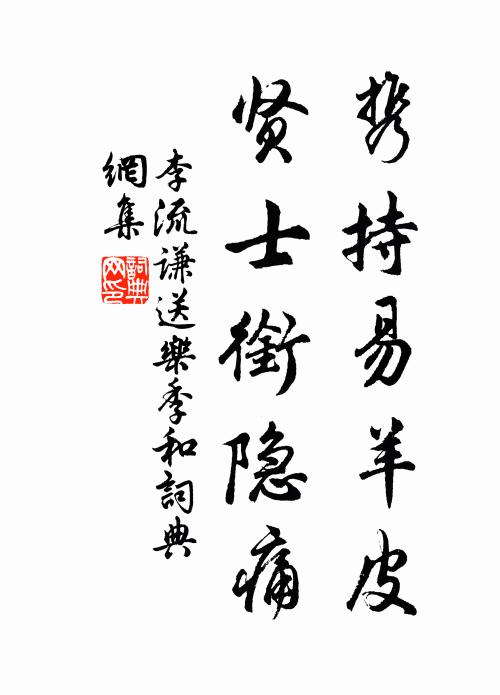 携持易羊皮
贤士衔隐痛
李流谦送樂季和詞典
網集
詞典
网印